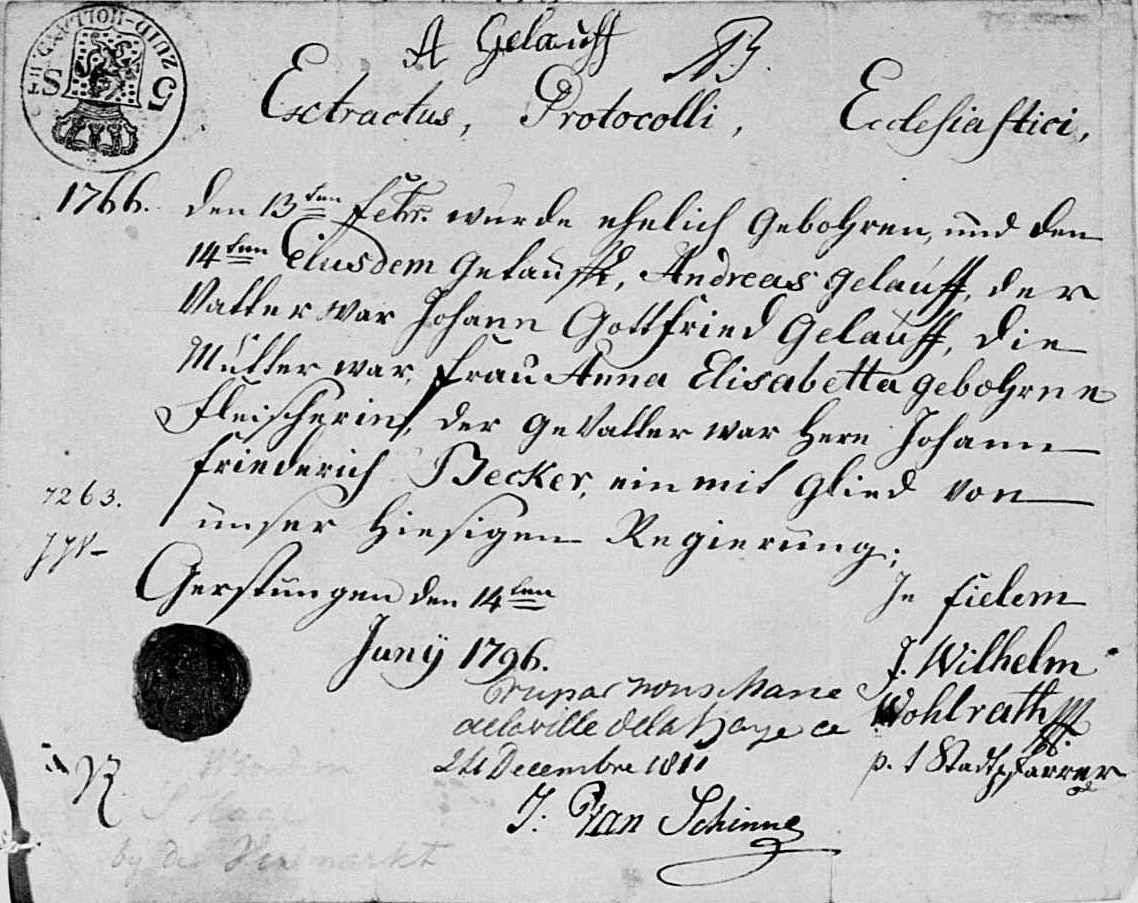 A Gelauff
Extractus, Protocolli, Ecclesiastici,
1766. den 13ten febr. wurde ehelich gebohren, und den
14ten Eiusdem getaufft, Andreas gelauff, der
Vatter war Johann Gottfried gelauff, die
Mutter war, frau Anna Elisabetta gebohrne
Fleischerin, der gevatter war Herr Johann
friederich Becker, ein mit glied von
unser hiesigen Regierung.
7263.
Gerstungen den 14ten
Juny 1796.
In fidem
J. Wilhelm
Wohlrath
p. t Stadtpfarrer
Vu par nous Maire
de la ville de la Haye ce
24 Decembre 1811
J: Van Schinne
ZUID-HOLL
S